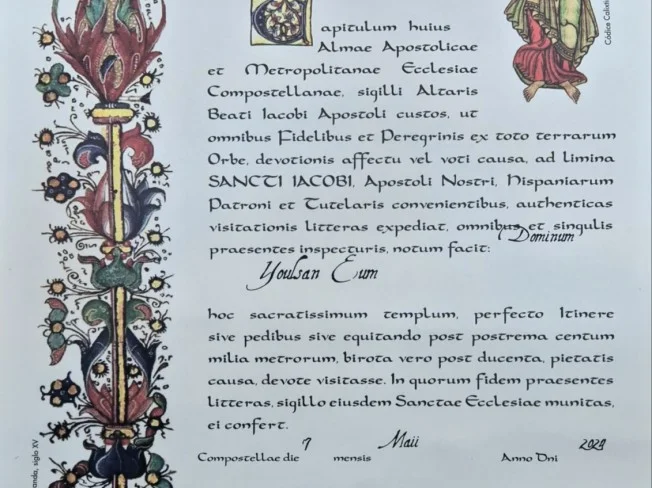 Capitulum huius
Almae Apostolicae
et Metropolitanae Ecclesiae
Compostellanae, sigilli Altaris
Beati Iacobi Apostoli custos, ut
omnibus Fidelibus et Peregrinis ex toto terrarum
Orbe, devotionis affectu vel voti causa, ad limina
SANCTI IACOBI, Apostoli Nostri, Hispaniarum
Patroni et Tutelaris convenientibus, authenticas
visitationis litteras expediat, omnibus et singulis
praesentes inspecturis, notum facit: Dominum
Youlsan Eum
hoc sacratissimum templum, perfecto Itinere
sive pedibus sive equitando post postrema centum
milia metrorum, birota vero post ducenta, pietatis
causa, devote visitasse. In quorum fidem praesentes
litteras, sigillo eiusdem Sanctae Ecclesiae munitas,
ei confert.
Compostellae die 7 mensis Maii Anno Dni 2024
siglo XV